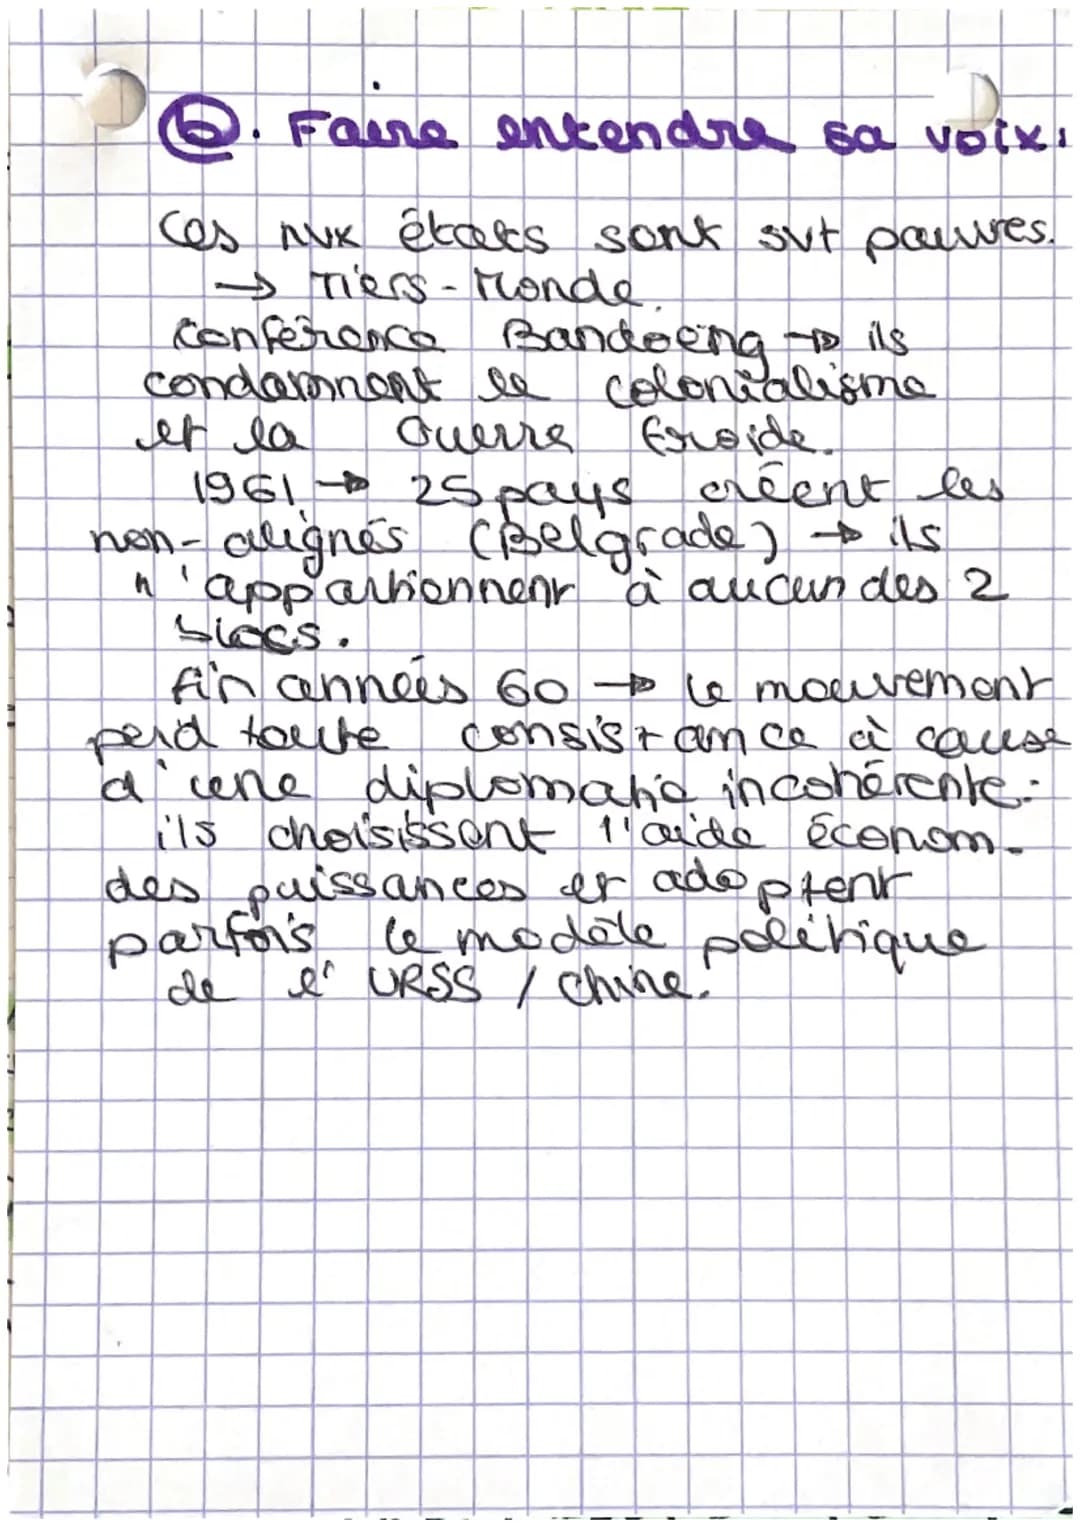 b. Faire entendre sa voix.
Ces nvx états sont svt pauvres.
→ Tiers-Monde.
Conférence Bandoeng → ils
condamnent le colonialisme
et la Guerre froide.
1961 → 25 pays créent les
non-alignés (Belgrade) → ils
n'appartiennent à aucun des 2
blocs.
fin années 60 → le mouvement
perd toute consistance à cause
d'une diplomatie incohérente:
ils choisissent l'aide économ.
des puissances et adoptent
parfois le modèle politique
de l'URSS / Chine.